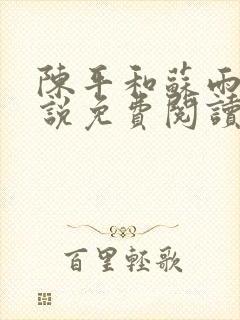 陳平和蘇雨
説免費閱讀
百里輕歌